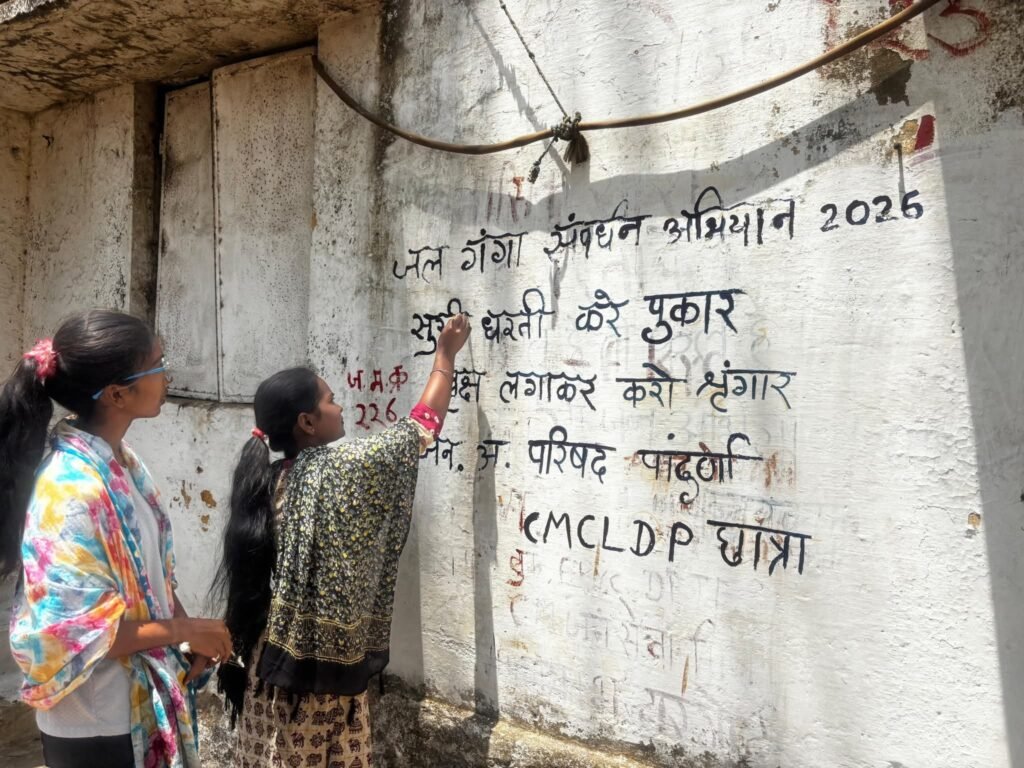 जल गंगा संवर्धन अभियान 2026
धरती करे पुकार
लगाकर करो श्रृंगार
ज.म.क्र
226
अ. परिषद पांढुर्णा
CMCLDP छात्रा